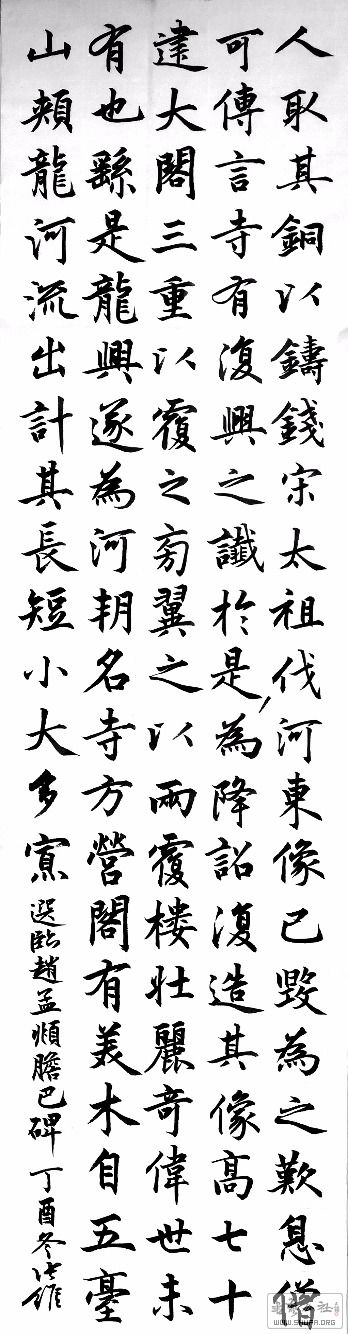 人取其銅以鑄錢宋太祖伐河東像已毀為之歎息僧
可傳言寺有復興之讖於是為降詔復造其像高七十
建大閣三重以覆之旁翼之以兩覆樓壯麗奇偉世未
有也繇是龍興遂為河朔名寺方營閣有美木自五臺
山頰龍河流出計其長短小大多寡
選臨趙孟頫膽巴碑 丁酉冬
WWW.SHUFA.ORG